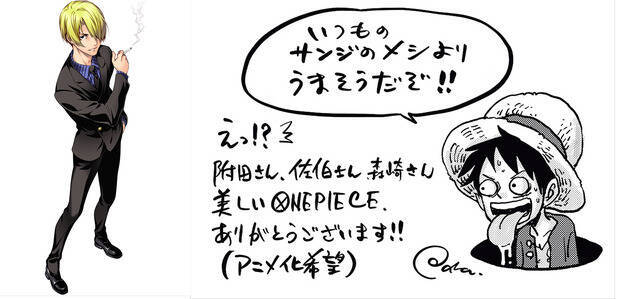 いつもの
サンジのメシより
うまそうだぞ!!
えっ!?
附田さん、佐伯さん 森崎さん
美しいONE PIECE、
ありがとうございます!!
(アニメ化希望)
Oda.